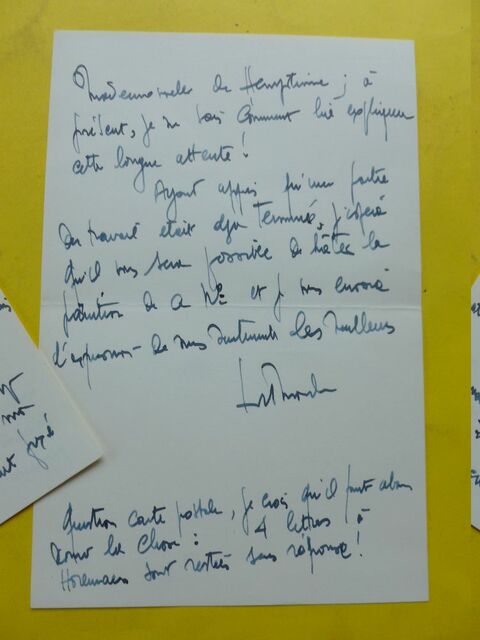 Mademoiselle de Hemptinne ; à
présent, je ne sais comment lui expliquer
cette longue attente !
Ayant appris qu'une partie
du travail était déjà terminée, j'espère
qu'il vous sera possible de hâter la
parution de ce N° et je vous envoie
l'expression de mes sentiments les meilleurs
Question carte postale, je crois qu'il faut aban
donner la chose : 4 lettres à
Horemans sont restées sans réponse !